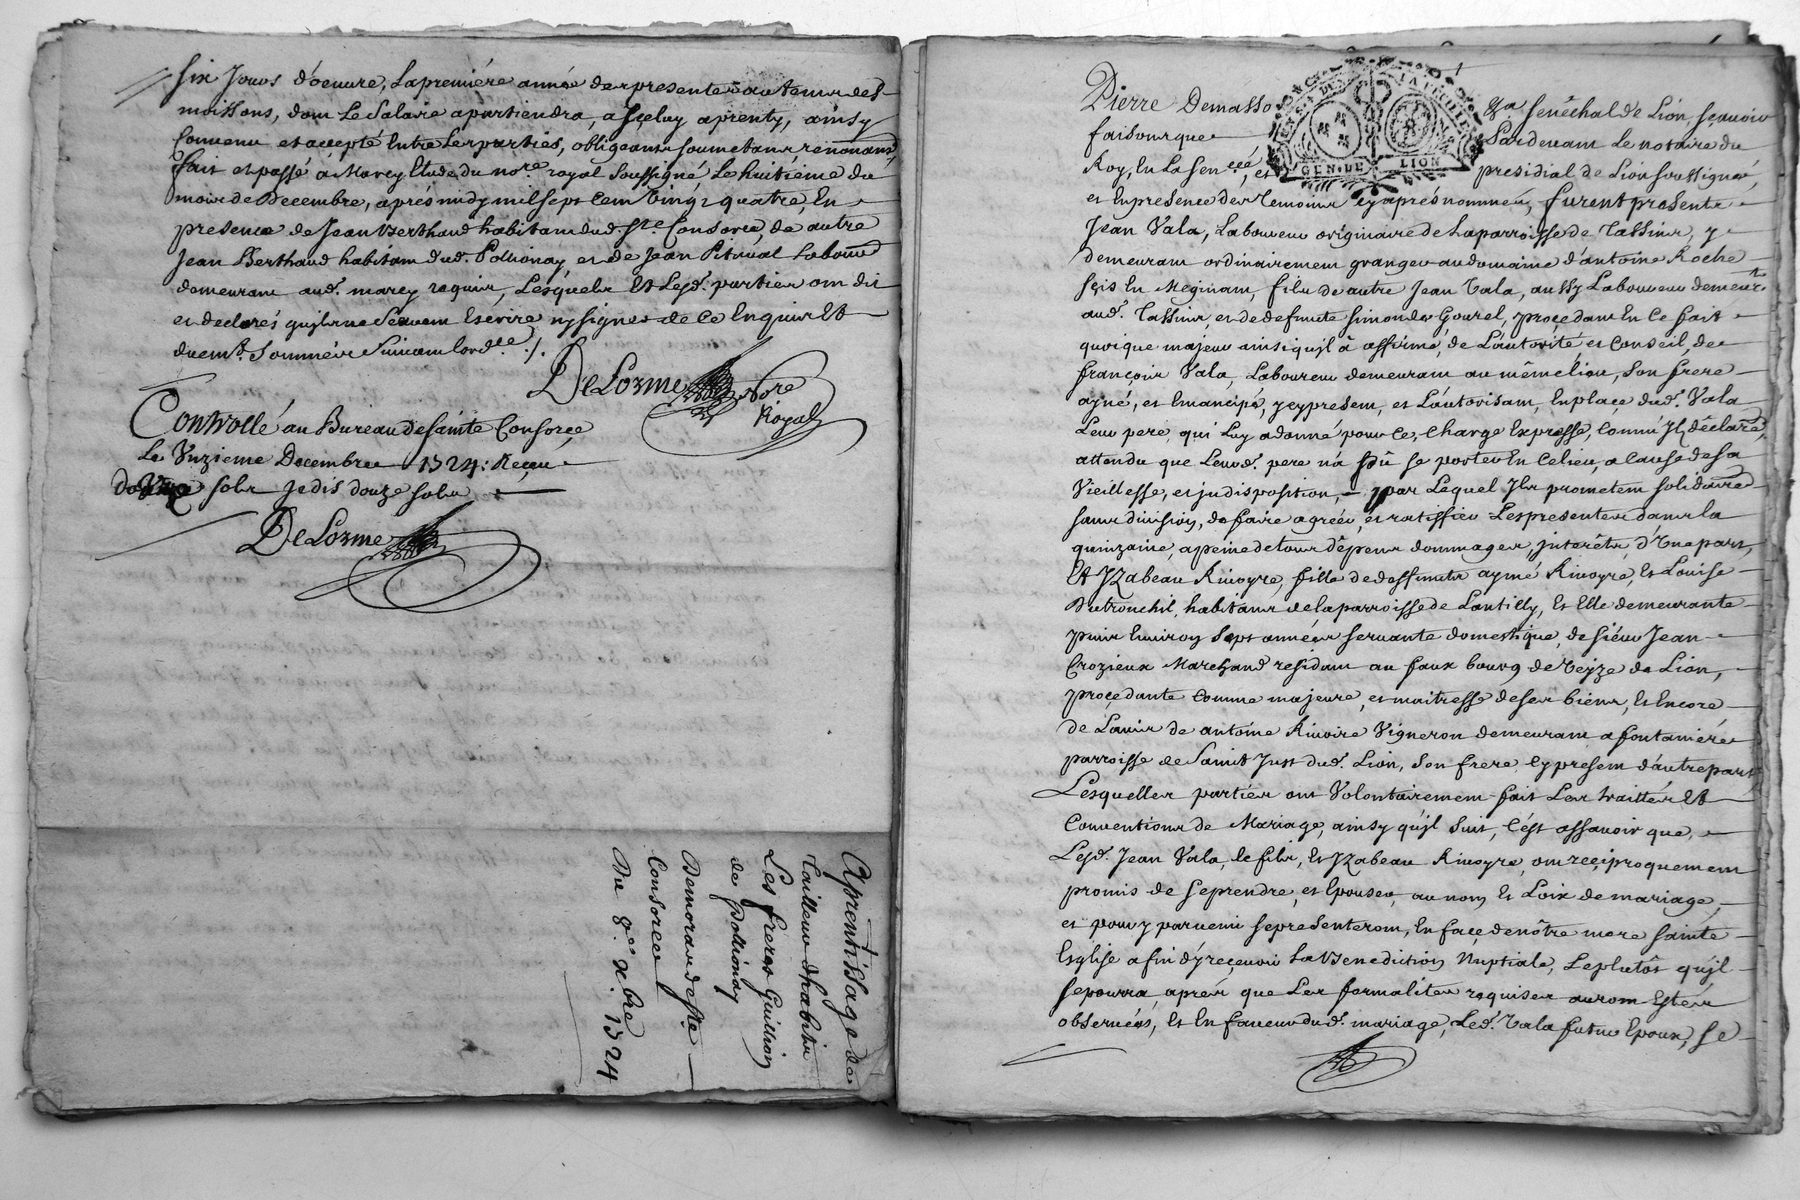 six Jours d'oeuvre, La premiére année des presentes au tems des
moissons, dont Le Salaire apartiendra, a Iceluy aprenty, ainsy
Convenu et accepté Entre Les parties, obligeants soumetants renonçants
fait et passé a Marcy Etude du nore royal soussigné Le huitiéme du
mois de Decembre, aprés midy mil sept Cent Vingt quatre, En
presence de Jean Berthaud habitant dud. Ste Consorce, de autre
Jean Berthaud habitant dud. Pollionay et de Jean Pitrval Labour
demeurant aud. marcy requis, Lesquels Et Lesd. parties ont dit
et declarés qu'ils ne Scavent Escrire ny signer de Ce Enquis Et
duemt. Sommés Suivant lordce ./.
DeLorme Nore
Royal
Controllé au Bureau de Sainte Consorce
Le Unzieme Decembre 1724: Reçeu
sols je dis douze sols
DeLorme
Aprentissage de
Tailleur d'habits
Les freres Guillion
de Pollionay
Demorand de Ste
Consorce
Du 8.e Xbre 1724
Pierre Demasso Sénéchal de Lion, sçavoir
faisons que Pardevant Le notaire du
Roy, En La Senceé, et presidial de Lion soussigné,
et En presence des Temoins cy aprés nommés, furent presents
Jean Vala, Laboureur originaire de La parroisse de Tassins, y
demeurant ordinairement granger au domaine d'antoine Roche
sçis En Meginant, fils de autre Jean Vala, aussy Laboureur demeurt
aud. Tassins, et de defunte Simonde Gourel, proçedant En Ce fait
quoique majeur ainsi qu'jl â affirmé, de L'autorité et Conseil, de
françois Vala, Laboureur demeurant au même lieu, Son frere
ayné, et Emancipé, ycy present, et L'autorisant, En place dud. Vala
Leur pere, qui Luy a donné pour Ce, Charge Expresse, Comme Jl déclare,
attendu que Leurd. pere n'a pû se porter En Ce lieu, a Cause de sa
Vieillesse, et jndisposition, par Lequel Jls prometent solidairet
sans division, de faire agréer, et ratiffier Les presentes dans la
quinzaine, a peine de tous dépens dommages, jnterêts, d'Une part,
Et Yzabeau Rivoyre, fille de deffunts aymé Rivoyre, Et Louise
Dutronchil, habitans de la parroisse de Lantilly, Et Elle demeurante
puis Environ Sept années servante domestique, de siéur Jean
Crozieux Marchand residant au faux bourg de Veyze de Lion,
proçedante Comme majeure, et maitresse de ses biens, Et Encore
de L'avis de antoine Rivoire Vigneron demeurant a fontaniéres
parroisse de Saint Just dud. Lion, Son frere Cy present d'autre part,
Lesquelles parties ont Volontairement fait Les traittés Et
Conventions de Mariage, ainsy qu'jl Suit, C'ést assavoir que,
Lesd. Jean Vala, le fils, Et Yzabeau Rivoyre, ont reçiproquement
promis de se prendre, et Epouser, au nom Et Loix de mariage,
et pour y parvenir se presenteront, En façe de nôtre mere sainte
Esglise afin d'y reçevoir La Benediction Nuptiale, Le plutôt qu'jl
se pourra, aprés que Les formalités requises auront Estées
observées, Et En faveur dud. mariage, Led. Vala futur Epoux, se